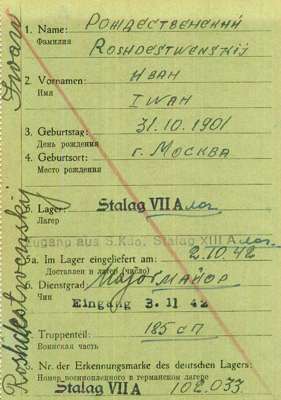 1. Name: РОЖДЕСТВЕНСКИЙ
Фамилия Roshdestwenskij
2. Vornamen: ИВАН
Имя IWAH
3. Geburtstag: 31.10.1901
День рождения
4. Geburtsort: г. МОСКВА
Место рождения
5. Lager: Stalag VII A
Лагер
Zugang aus S.Kdo. Stalag XIII A
5a. Im Lager eingeliefert am: 2.10.42
Доставлен в лагер (число)
6. Dienstgrad Major МАЙОР
Чин
Eingang 3. 11 42
Truppenteil: 185 сп
Воинская часть
Nr. der Erkennungsmarke des deutschen Lagers:
Номер военнопленного в германском лагере
Stalag VII A 102.033
Roshdestwenskij Iwan